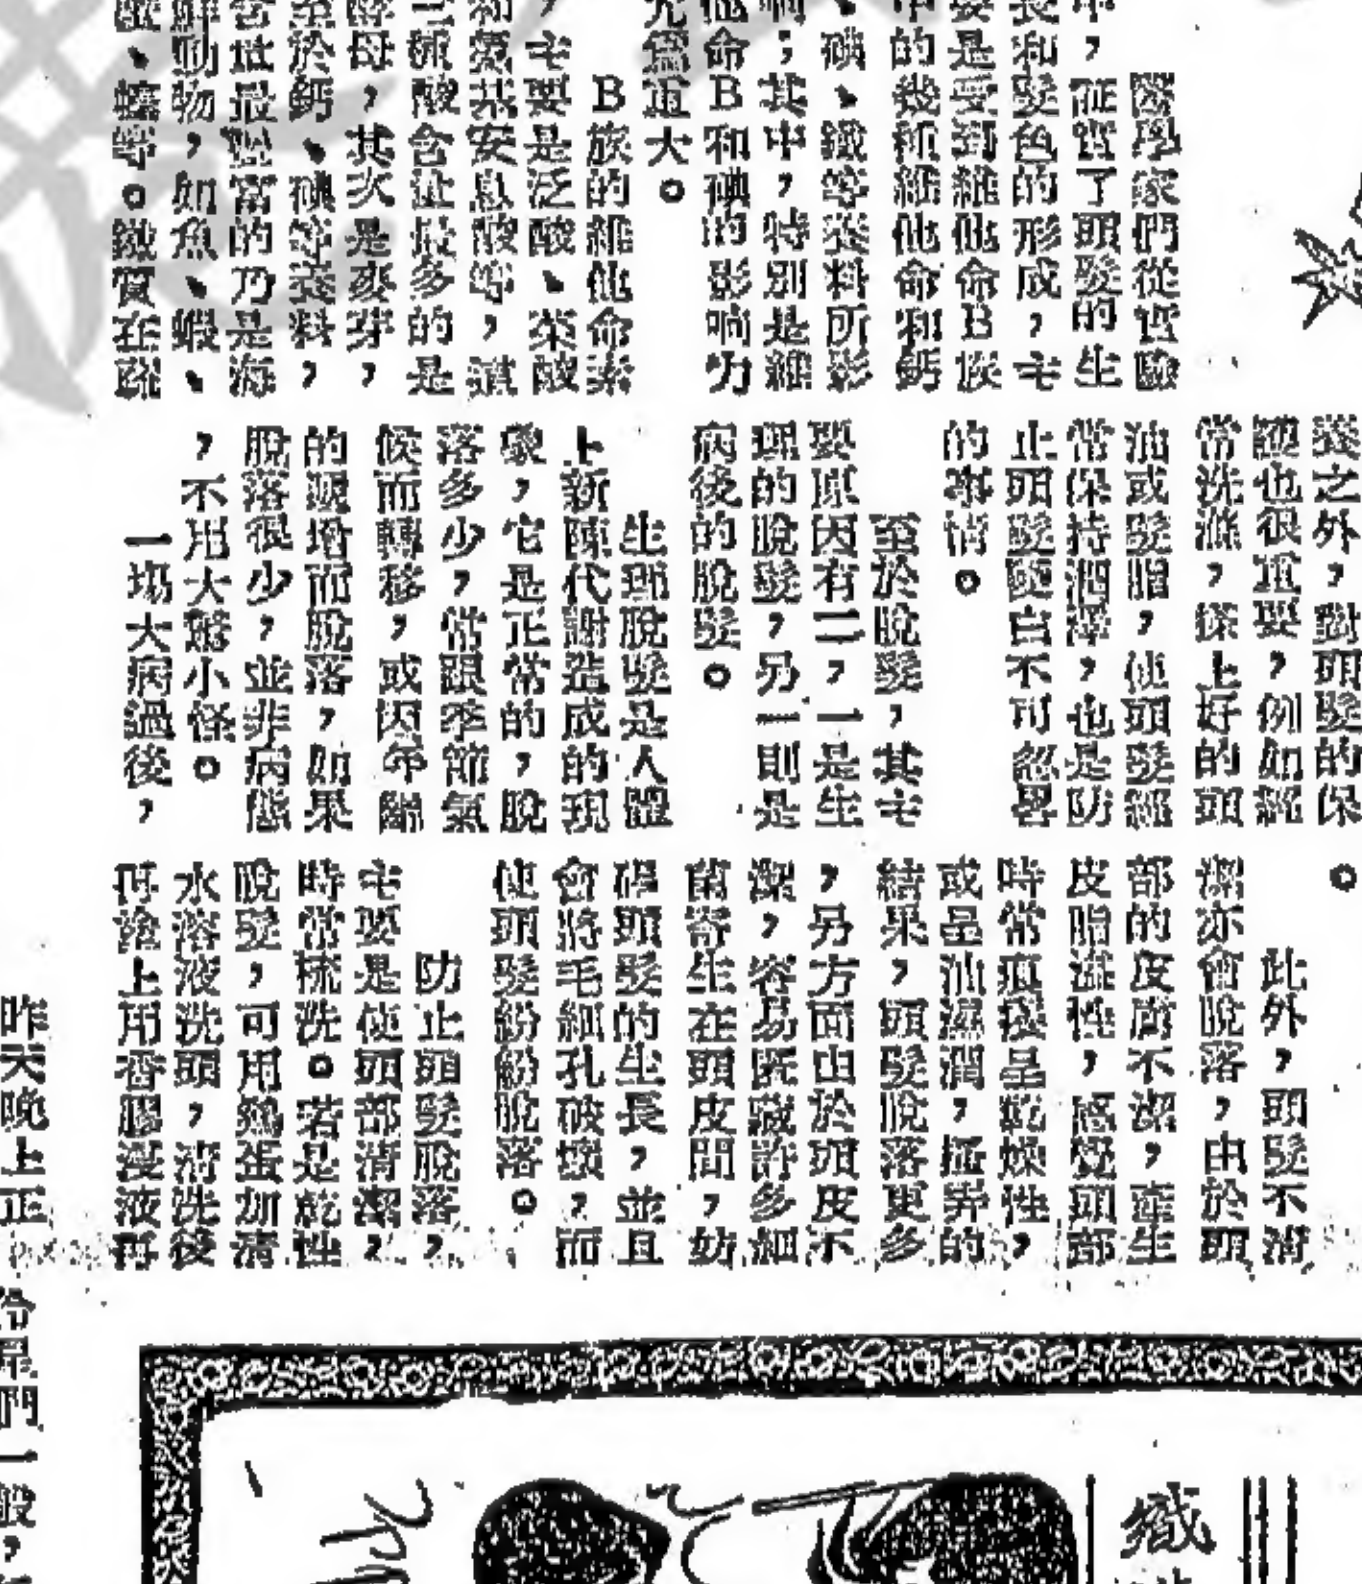 醫學家們從實驗
中，證實了頭髮的生
長和髮色的形成，主
要是受到維他命B族
中的幾種維他命和鈣
、碘、鐵等養料所影
响；其中，特別是維
他命B和碘的影响力
尤為重大。
B族的維他命素
，主要是泛酸、葉酸
和氨基安息酸等，這
三種酸含量最多的是
酵母，其次是麥芽，
至於鈣、碘等養料，
含量最豐富的乃是海
鮮動物，如魚、蝦、
蠔等。鐵質在蔬
養之外，對頭髮的保
護也很重要，例如經
常洗滌，搽上好的頭
油或髮脂，使頭髮經
常保持潤澤，也是防
止頭髮變白不可忽畧
的事情。
至於脫髮，其主
要原因有二，一是生
理的脫髮，另一則是
病後的脫髮。
生理脫髮是人體
上新陳代謝造成的現
象，它是正常的，脫
落多少，常跟季節氣
候而轉移，或因年齡
的遞增而脫落，如果
脫落很少，並非病態
，不用大驚小怪。
一場大病過後，
。
此外，頭髮不清
潔亦會脫落，由於頭
部的皮膚不潔，產生
皮脂溢性，感覺頭部
時常痕癢呈乾燥性，
或呈油濕潤，搔弄的
結果，頭髮脫落更多
，另方面由於頭皮不
潔，容易匿藏許多細
菌寄生在頭皮間，妨
礙頭髮的生長，並且
會將毛細孔破壞，而
使頭髮紛紛脫落。
防止頭髮脫落，
主要是使頭部清潔，
時常梳洗。若是乾性
脫髮，可用鷄蛋加清
水溶液洗頭，清洗後
再塗上用香膠浸液再
昨天晚上正
們一般，
織